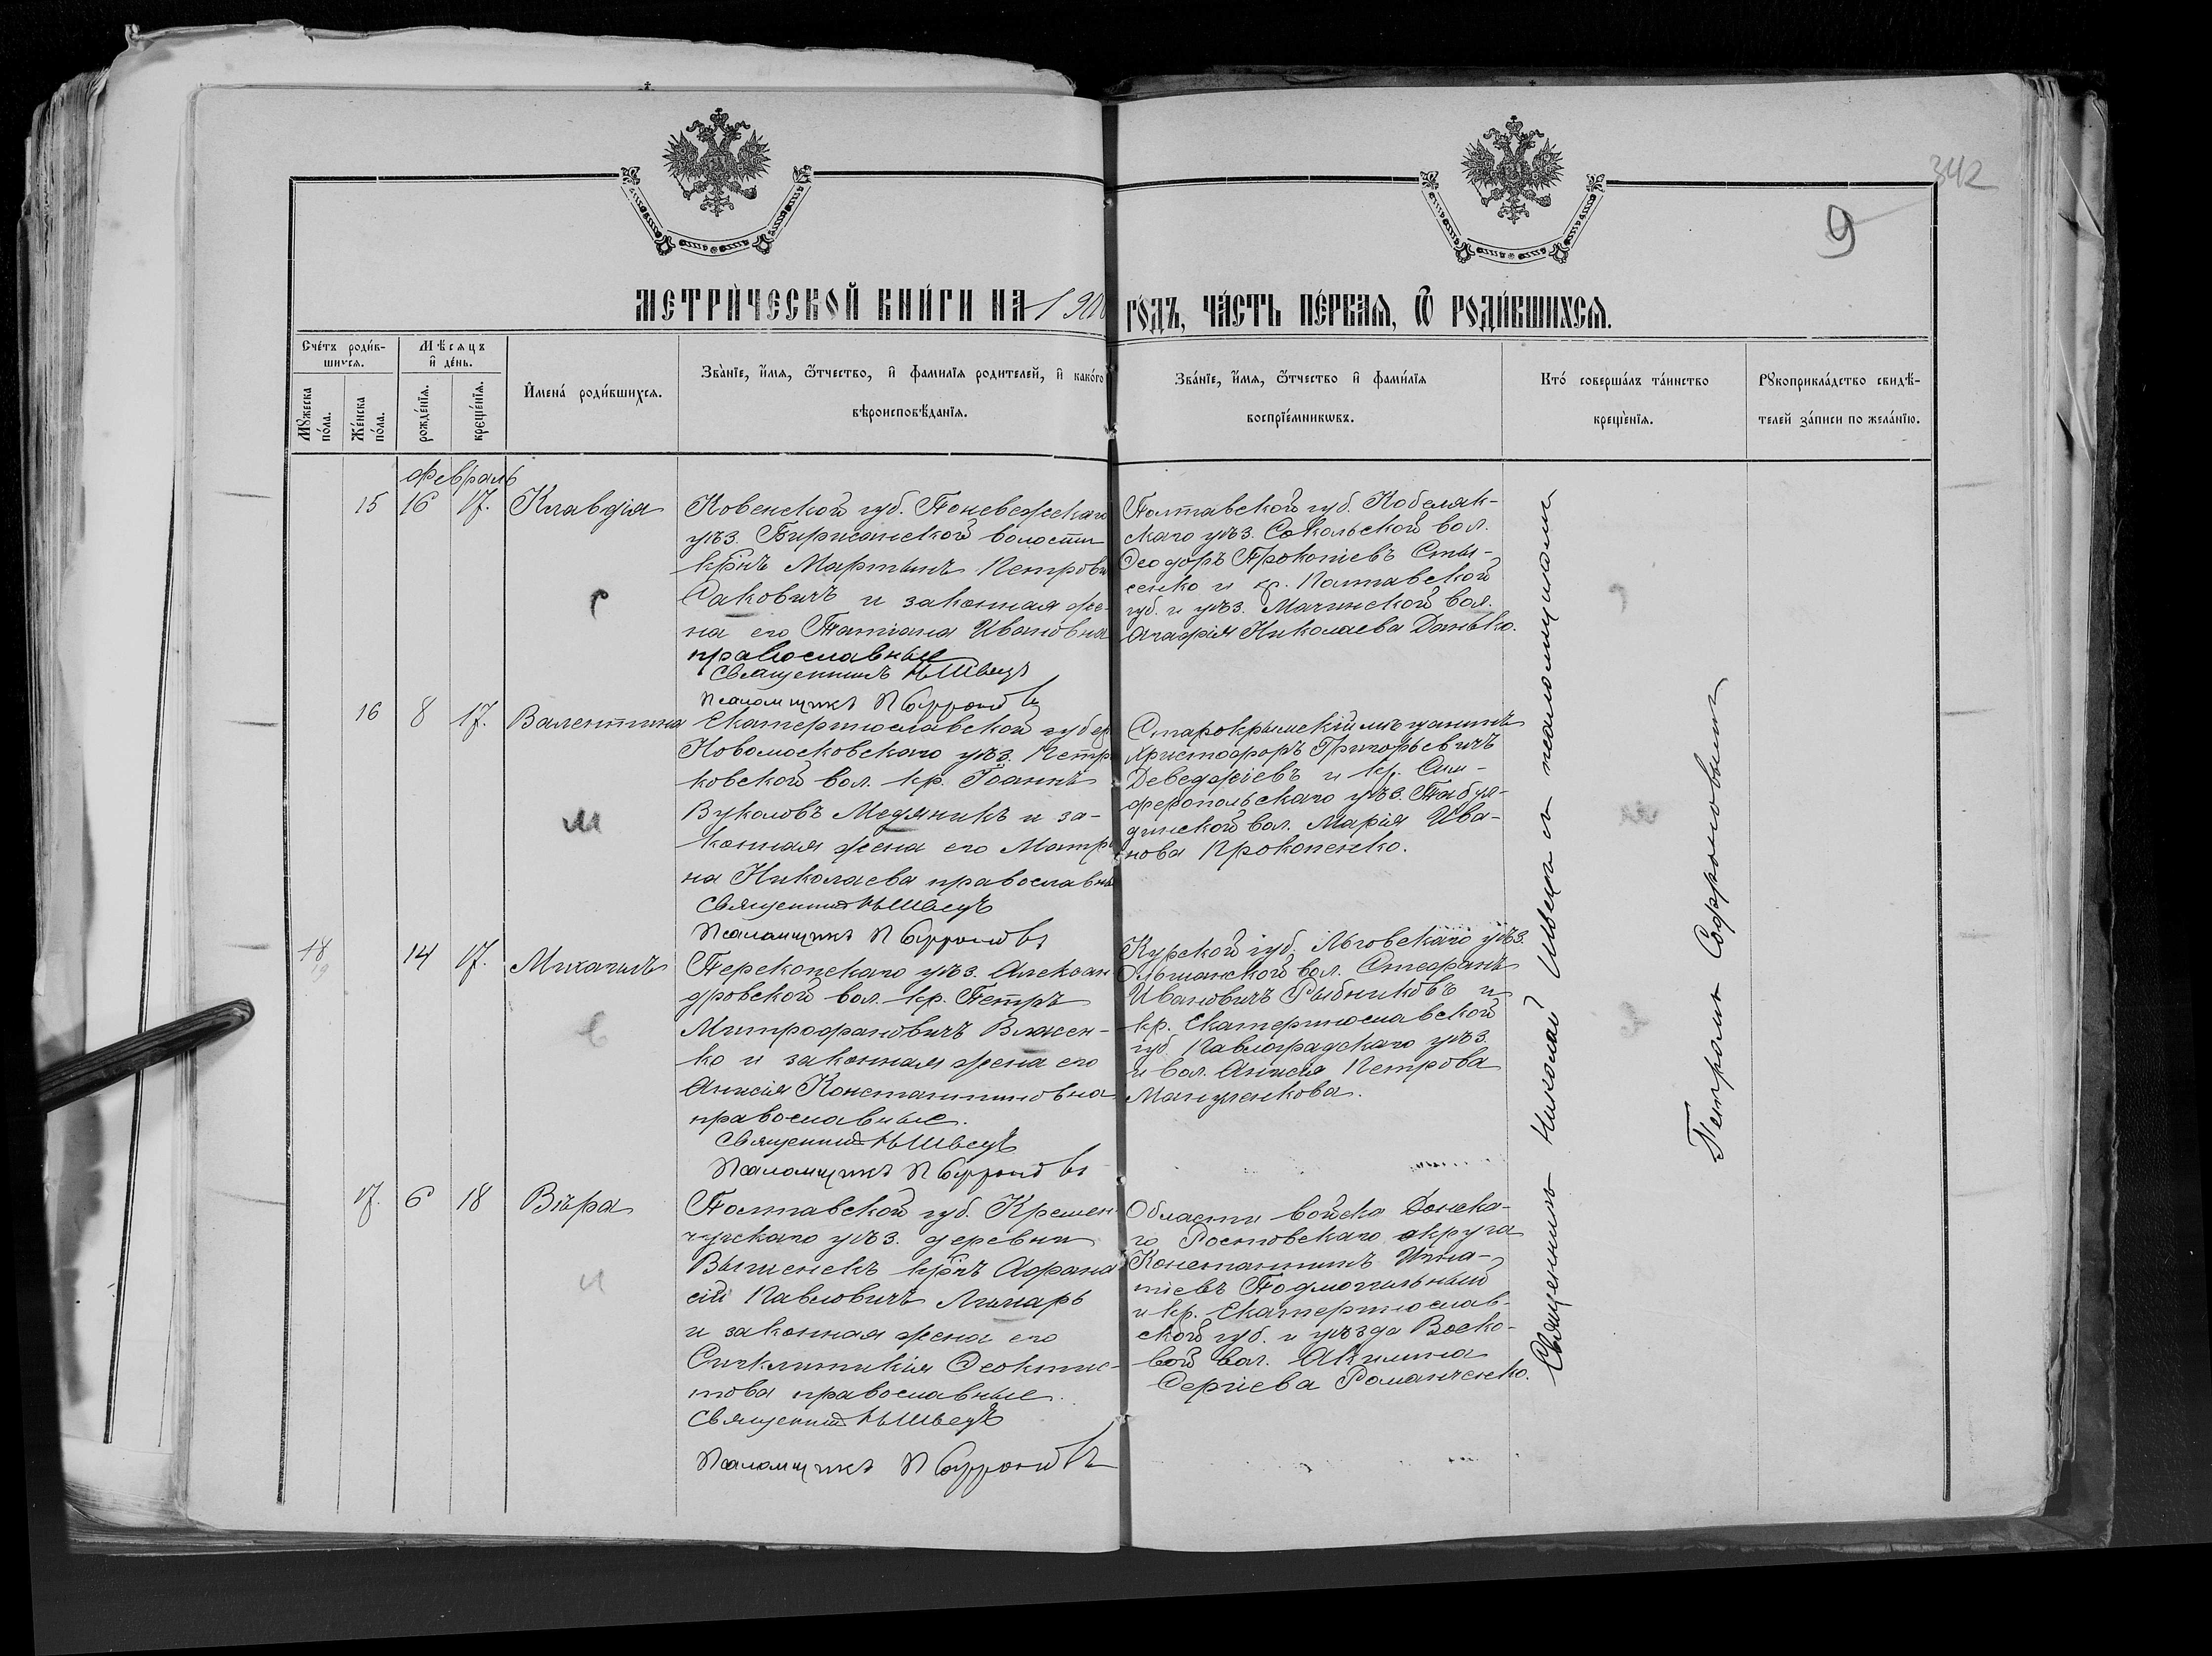 342
9
МЕТРИ́ЧЕСКОЙ КНИ́ГИ НА 190
ГО́ДЪ, ЧА́СТЬ ПЕ́РВАЯ, Ѿ РОДИ́ВШИХСЯ.
Сче́тъ роди́в-
шихся.
Мѣсяцъ
и҆ де́нь.
Мꙋжеска
по́ла.
Же́нска
по́ла.
рожде́нїя.
креще́нїя.
И҆мена̀ роди́вшихся.
Зва́нїе, и҆́мя, ѻ҆́тчество, и҆ фами́лїя родителей, и҆ како́го
вѣроисповѣ́данїя.
Зва́нїе, и҆́мя, ѻ҆́тчество и҆ фами́лїя
воспрїе́мникѡвъ.
Кто́ соверша́лъ та́инство
креще́нїя.
Рꙋкоприкла́дство свидѣ́-
телей за́писи по жела́нїю.
Февраль
15 16 17. Клавдія
Ковенской губ. Поневежскаго
уѣз. Биржанской волости
кр̃нъ Мартынъ Петрови
Саковичъ и законная же-
на его Татіана Ивановна
православные
Священникъ Н Швецъ
Псаломщикъ П Софроновъ
Полтавской губ. Кобеляк-
скаго уѣз. Сокольской вол.
Ѳеодоръ Прокопіевъ
сенко и кр. Полтавской
губ. и уѣз. Мачинской вол.
Агафія Николаева Данько.
16 8 17. Валентина
Екатеринославской губер
Новомосковскаго уѣз. Петри
ковской вол. кр. Іоаннъ
Вуколовъ Медяникъ и за-
конная жена его Матро
на Николаева православны
Священникъ Н Швецъ
Псаломщикъ П Софроновъ
Старокрымскій мѣщанинъ
Христофоръ Григорьевичъ
Деведжіевъ и кр. Сим-
феропольскаго уѣз. Табул-
динской вол. Марія Ива-
нова Прокопенко.
18 14 17. Михаилъ
19
Перекопскаго уѣз. Алексан
дровской вол. кр. Петръ
Митрофановичъ Власен-
ко и законная жена его
Анисія Константиновна
православные.
Священникъ Н Швецъ
Псаломщикъ П Софроновъ
Курской губ. Льговскаго уѣз.
Ольшанской вол. Стефанъ
Ивановичъ Рыбниковъ и
кр. Екатеринославской
губ. Павлоградскаго уѣз.
и вол. Анисія Петрова
17. 6 18 Вѣра
Полтавской губ. Кремен
чугскаго уѣз. деревни
кр̃нъ Афана
сій Павловичъ Лымарь
и законная жена его
Синклитикія Ѳеоктис-
това православные.
Священникъ Н Швецъ
Псаломщикъ П Софроновъ
Области войска Донска-
го Ростовскаго округа
Константинъ Игна-
тіевъ Подмогильный
и кр. Екатеринослав-
ской губ. и уѣзда Воско-
вой вол. Акилина
Сергіева Романченко.
Священникъ Николай Швецъ съ псаломщикомъ
Петромъ Софроновымъ